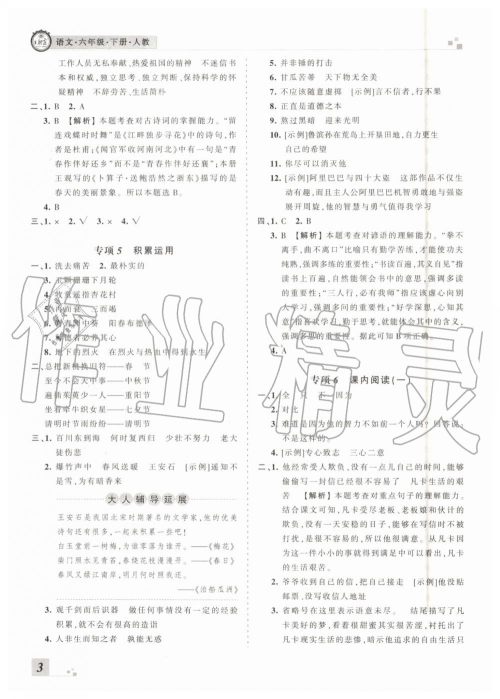 语文·六年级·下册·人教
工作人员无私奉献,热爱祖国的精神 不迷信书本
权威,独立思考、独立判断,保持科学的怀疑
精神 不辞劳苦、生活简朴
二、1. B 2. A
3. B 【解析】本题考查对古诗词的掌握能力。“留
连戏蝶时时舞”是《江畔独步寻花》中的诗句,作
者是杜甫;《闻官军收河南河北》中有一句是“青
春作伴好还乡”而不是“青春作伴好还裹”;本册
王观写的《卜算子·送鲍浩然之浙东》描写的是
春天的美丽景象。所以本题选B。
三、1. × 2. √ 3. × 4. √
专项5 积累运用
一、1. 洗去痛苦 2. 最朴实的
3. 飞骑珊珊下月轮
4. 牧童遥指杏花村
6. 青青园中葵 阳春布德泽
8. 地下的烈火 在烈火与热血中得到永生
二、总把新桃换旧符——春 节
至今不会天中事——中秋节
遍插茱萸少一人——重阳节
坐看牵牛织女星——七夕节
清明时节雨纷纷——清明节
三、1. 百川东到海 何时复西归 少壮不努力 老大
徒伤悲
2. 爆竹声中 春风送暖 王安石 [示例]遥知不
是雪,为有暗香来
大人辅导延展
王安石是我国北宋时期著名的文学家,他的优美
诗句还有很多,一起来积累一些吧!
白玉堂前一树梅,为谁零落为谁开。——《梅花》
柴门照水见青苔,春绕花枝漫漫开。——《春日》
春风又绿江南岸,明月何时照我还。
——《泊船瓜洲》
3. 观千剑而后识器 做任何事情没有一定的经验
积累,就不会有很高的造诣
4. 人非生而知之者 孰能无惑
3
5. 并非锤的打击
6. 甘瓜苦蒂 天下物无全美
7. 不应该随意虚掷 [示例]言不信者,行不果
8. 正直是道德之本
9. 熬过黑暗 迎来光明
10. [示例]鲁滨孙在荒岛上开垦田地,自力更生
自己的希望
11. 你尽可以消灭他
12. [示例]阿里巴巴与四十大盗 这部作品不仅生
动有趣,而且主人公阿里巴巴机智勇敢地与强盗
展开周旋,他的智慧与勇气值得我学习
四、1. C 2. B
3. B 【解析】本题考查对谚语的理解能力。“拳不
离手,曲不离口”比喻只有勤学苦练,才能使功夫
纯熟,强调的是练习;“书读百遍,其义自见”指
读书百遍,自然能领会书中的意思,强调多读
的重要性;“三人行,必有我师”指应该虚心向别
人学习,强调学习他人的长处;“好学深思,心知其
意”指喜欢学习、勤于思考,就能体会其中的含义,
强调多思的重要性。据此可知B项正确。
4. A
专项6 课内阅读(一)
一、1. 全 只 不 因为
2. 对北
4. [示例]专心致志 三心二意
二、1. 他经常受人欺负,没有一点儿自己的时间,能够
偷偷写一封信已经很不容易了 凡卡生活的艰
苦 【解析】本题考查对重点句子的理解能力。
结合课文可知,凡卡受尽老板、老板娘和伙计的
欺负,没有一天安稳的日子,能够在写信时不被
打扰,是很不容易的,所以他很满意。从凡卡因
为这样一件小小的事就得到满足中可以看出,凡卡
的生活很艰苦
2. 爷爷收到自己的信 [示例]他没贴
邮票、没写收信人地址
3. 省略号在这里表示语意未尽。 结尾描写了凡
卡美好的梦,看似甜蜜其实很苦涩,衬托出凡卡
现实生活的悲惨,暗示他追求的自由生活只